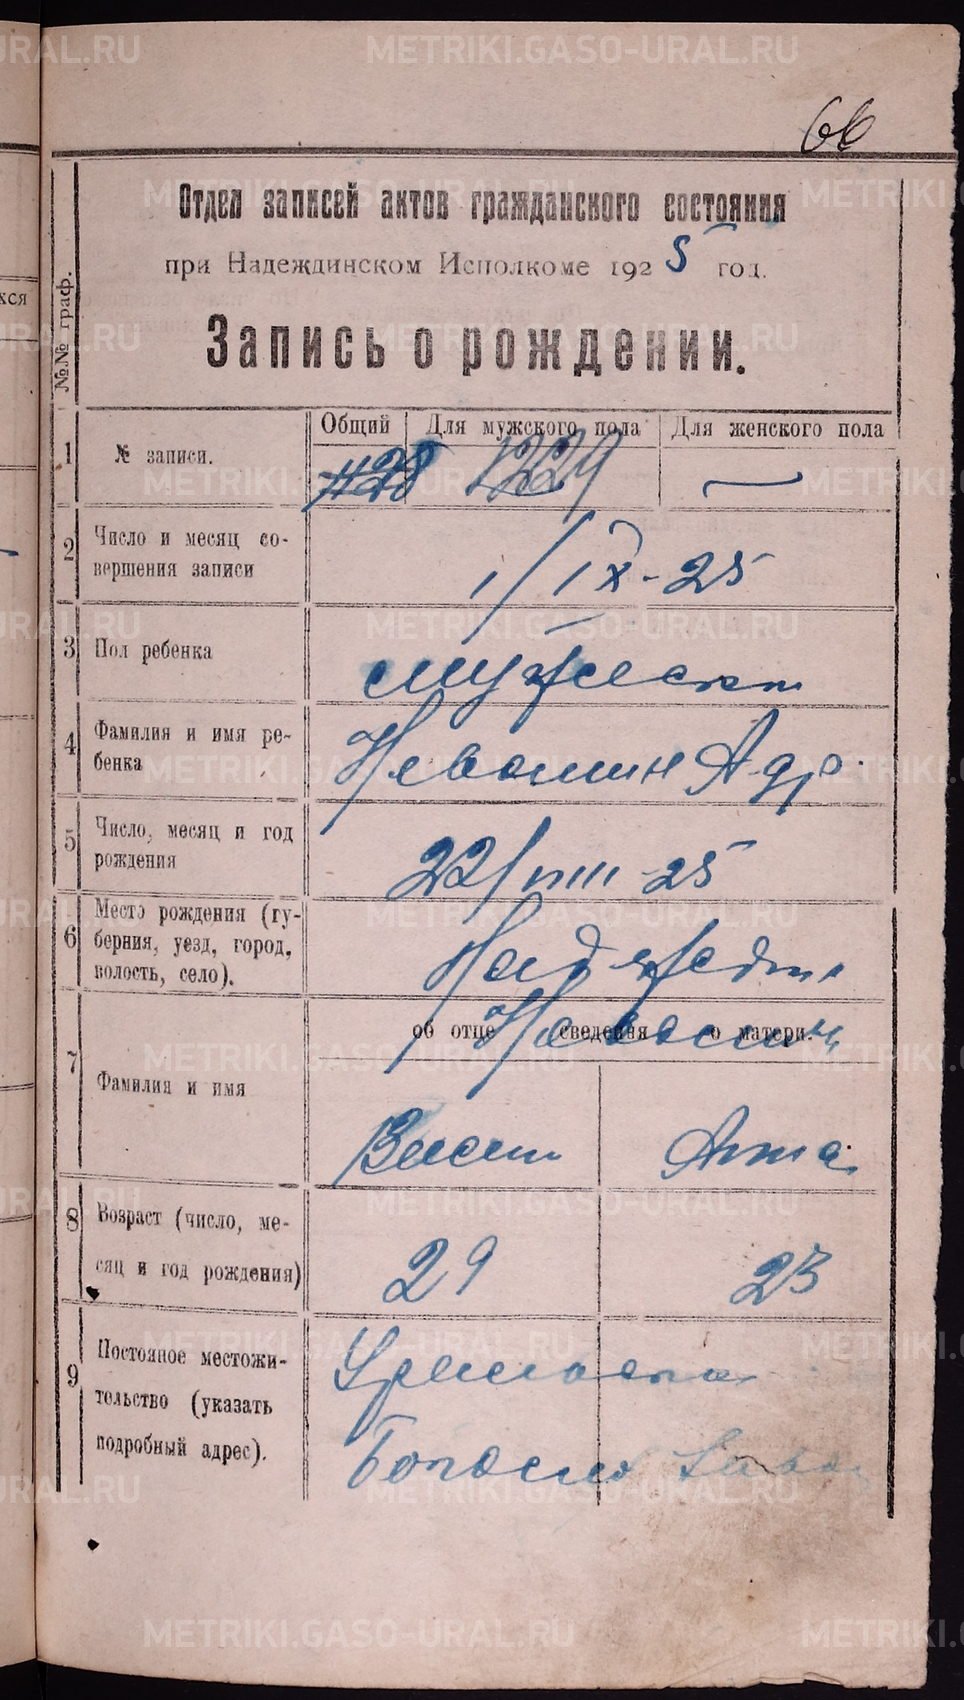 66
Отдел записей актов гражданского состояния
при Надеждинском Исполкоме 1925 год.
Запись о рождении.
№№ граф.
Общий Для мужского пола Для женского пола
1 № записи. 428 1229 —
2 Число и месяц со-
вершения записи
1/IX-25
3 Пол ребенка мужеск
4 Фамилия и имя ре-
бенка
Адр.
5 Число, месяц и год
рождения
22/VIII-25
6 Место рождения (гу-
берния, уезд, город,
волость, село).
об отце сведения о матери.
7 Фамилия и имя
Васил Анна
8 Возраст (число, ме-
сяц и год рождения)
29 23
9 Постояное местожи-
тельство (указать
подробный адрес).
METRIKI.GASO-URAL.RU